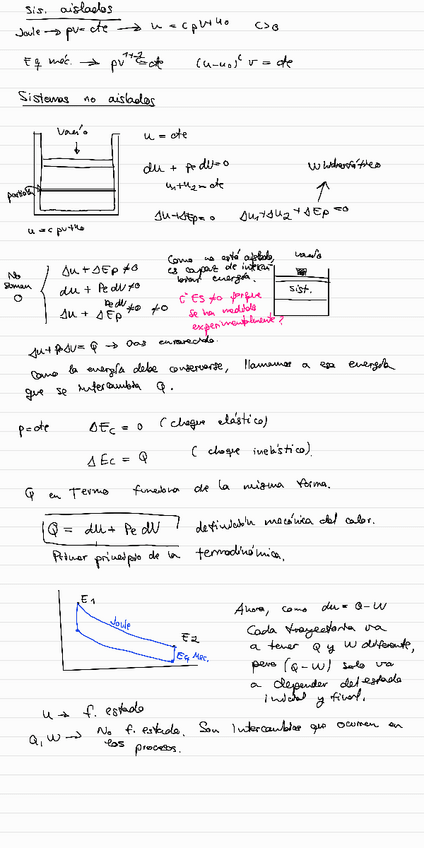 Sis. aislados
Joule → pv = cte → u = c pv + u₀ c>0
Eq. méc. → pv^(1+1/c) = cte (u-u₀)^c v = cte
Sistemas no aislados
vacío
u = cte
du + Pe dV = 0
u₁+u₂ = cte
Δu+ΔEp = 0
Δu₁+Δu₂+ΔEp = 0
u = c pv + u₀
No
suman
0
Δu + ΔEp ≠ 0
du + Pe dV ≠ 0
Δu + ΔEp ≠ 0
Como no está aislado,
es capaz de intercam
biar energía.
vacío
sist.
¿ES ≠ 0 porque
se ha medido
experimentalmente?
Δu + PΔV = Q → Gas enrarecido.
Como la energía debe conservarse, llamamos a esa energía
que se intercambia Q.
p = cte ΔEc = 0 (choque elástico)
ΔEc = Q (choque inelástico).
Q en Termo funciona de la misma forma.
Q = du + Pe dV definición mecánica del calor.
Primer principio de la termodinámica.
E1
Joule
E2
Eq. Mec.
Ahora, como du = Q - W
Cada trayectoria va
a tener Q y W diferente,
pero (Q-W) solo va
a depender del estado
inicial y final.
u → f. estado
Q, W → No f. estado. Son intercambios que ocurren en
los procesos.